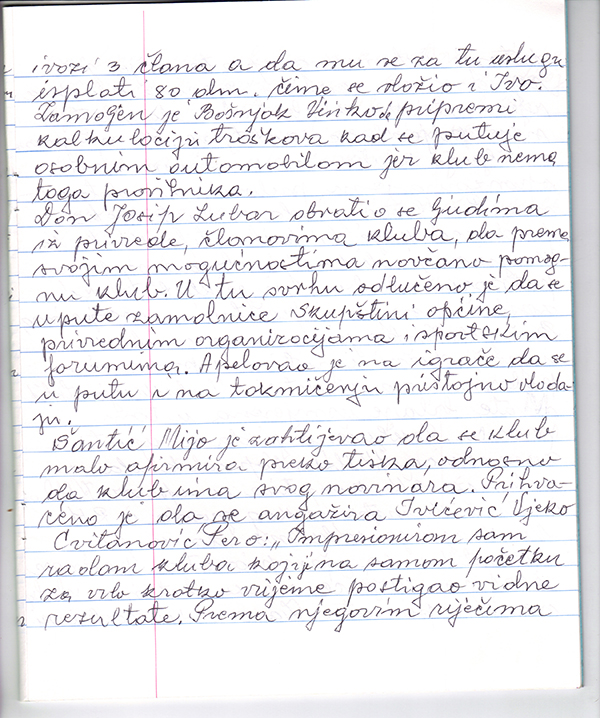 i vozi 3 člana a da mu se za tu uslugu
isplati 80 din. čime se složio i Ivo.
Zamoljen je Bošnjak Vinko da pripremi
kalkulaciju troškova kad se putuje
osobnim automobilom jer klub nema
toga pravilnika.
Don Josip Zubar obratio se ljudima
iz privrede, članovima kluba, da prema
svojim mogućnostima novčano pomog-
nu klub. U tu svrhu odlučeno je da se
upute zamolnice Skupštini općine,
privrednim organizacijama i sportskim
forumima. Apelovao je na igrače da se
u putu i na takmičenju pristojno vlada-
ju.
Šantić Mijo je zahtijevao da se klub
malo afirmira preko tiska, odnosno
da klub ima svog novinara. Prihva-
ćeno je da se angažira Ivićević Vjeko
Cvitanović Pero: „Impresioniran sam
radom kluba koji je na samom početku
za vrlo kratko vrijeme postigao vidne
rezultate. Prema njegovim riječima